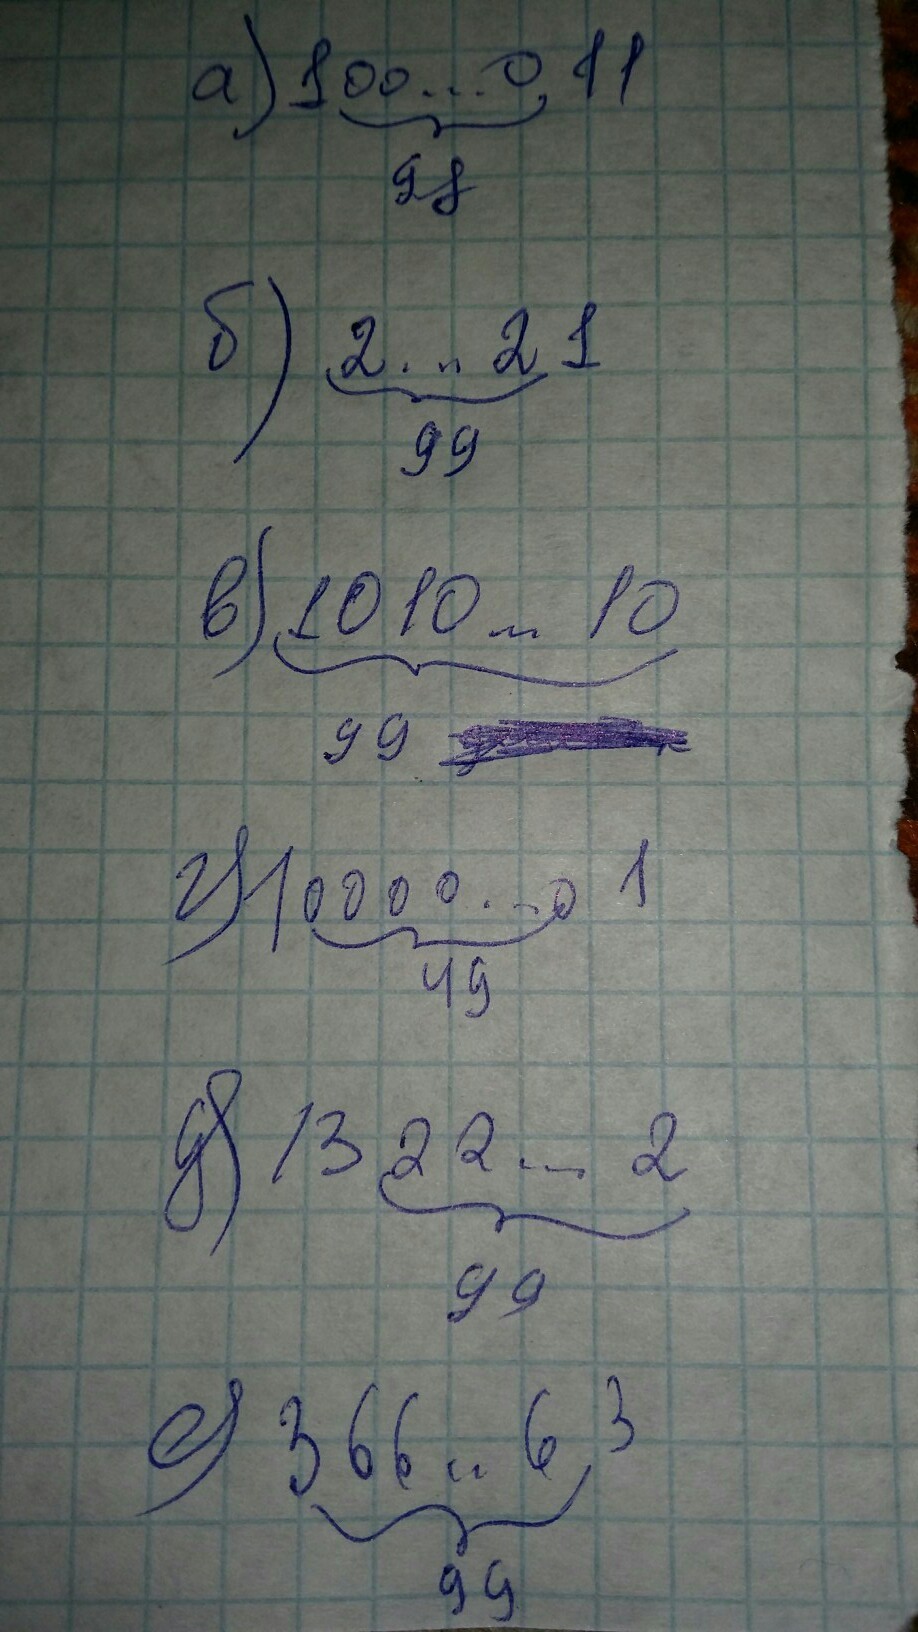 а) 100...011
98
б) 2...21
99
в) 1010...10
99
г) 10000...01
49
д) 1322...2
99
е) 366..63
99